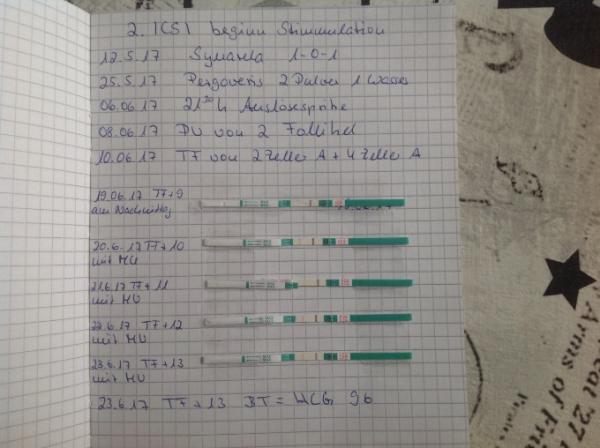 2. ICSI beginn Stimmulation
12.5.17 Synarela 1-0-1
25.5.17 Pergoveris 2 Pulver 1 Wasser
06.06.17 21³⁰ h Auslösespritze
08.06.17 PU von 2 Follikel
10.06.17 TF von 2 Zeller A + 4 Zeller A
19.06.17 TF+9
am Nachmittag
20.6.17 TF+10
mit MU
21.6.17 TF+11
mit MU
22.6.17 TF+12
mit MU
23.6.17 TF+13
mit MU
23.6.17 TF+13 BT= HCG 96
Arms of Fr
eat '27